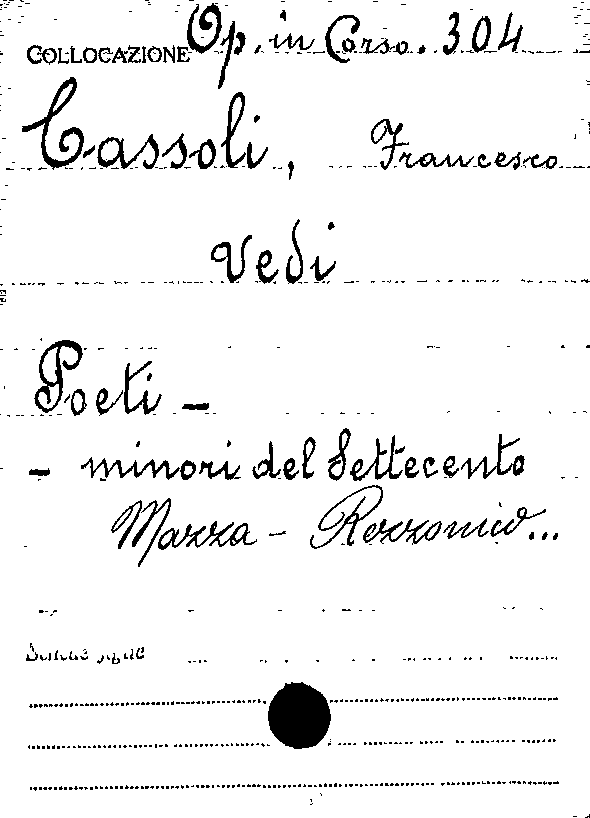 COLLOCAZIONE Op. in Corso. 304
Cassoli, Francesco
Vedi
Poeti -
- minori del Settecento
Mazza - Rezzonico...